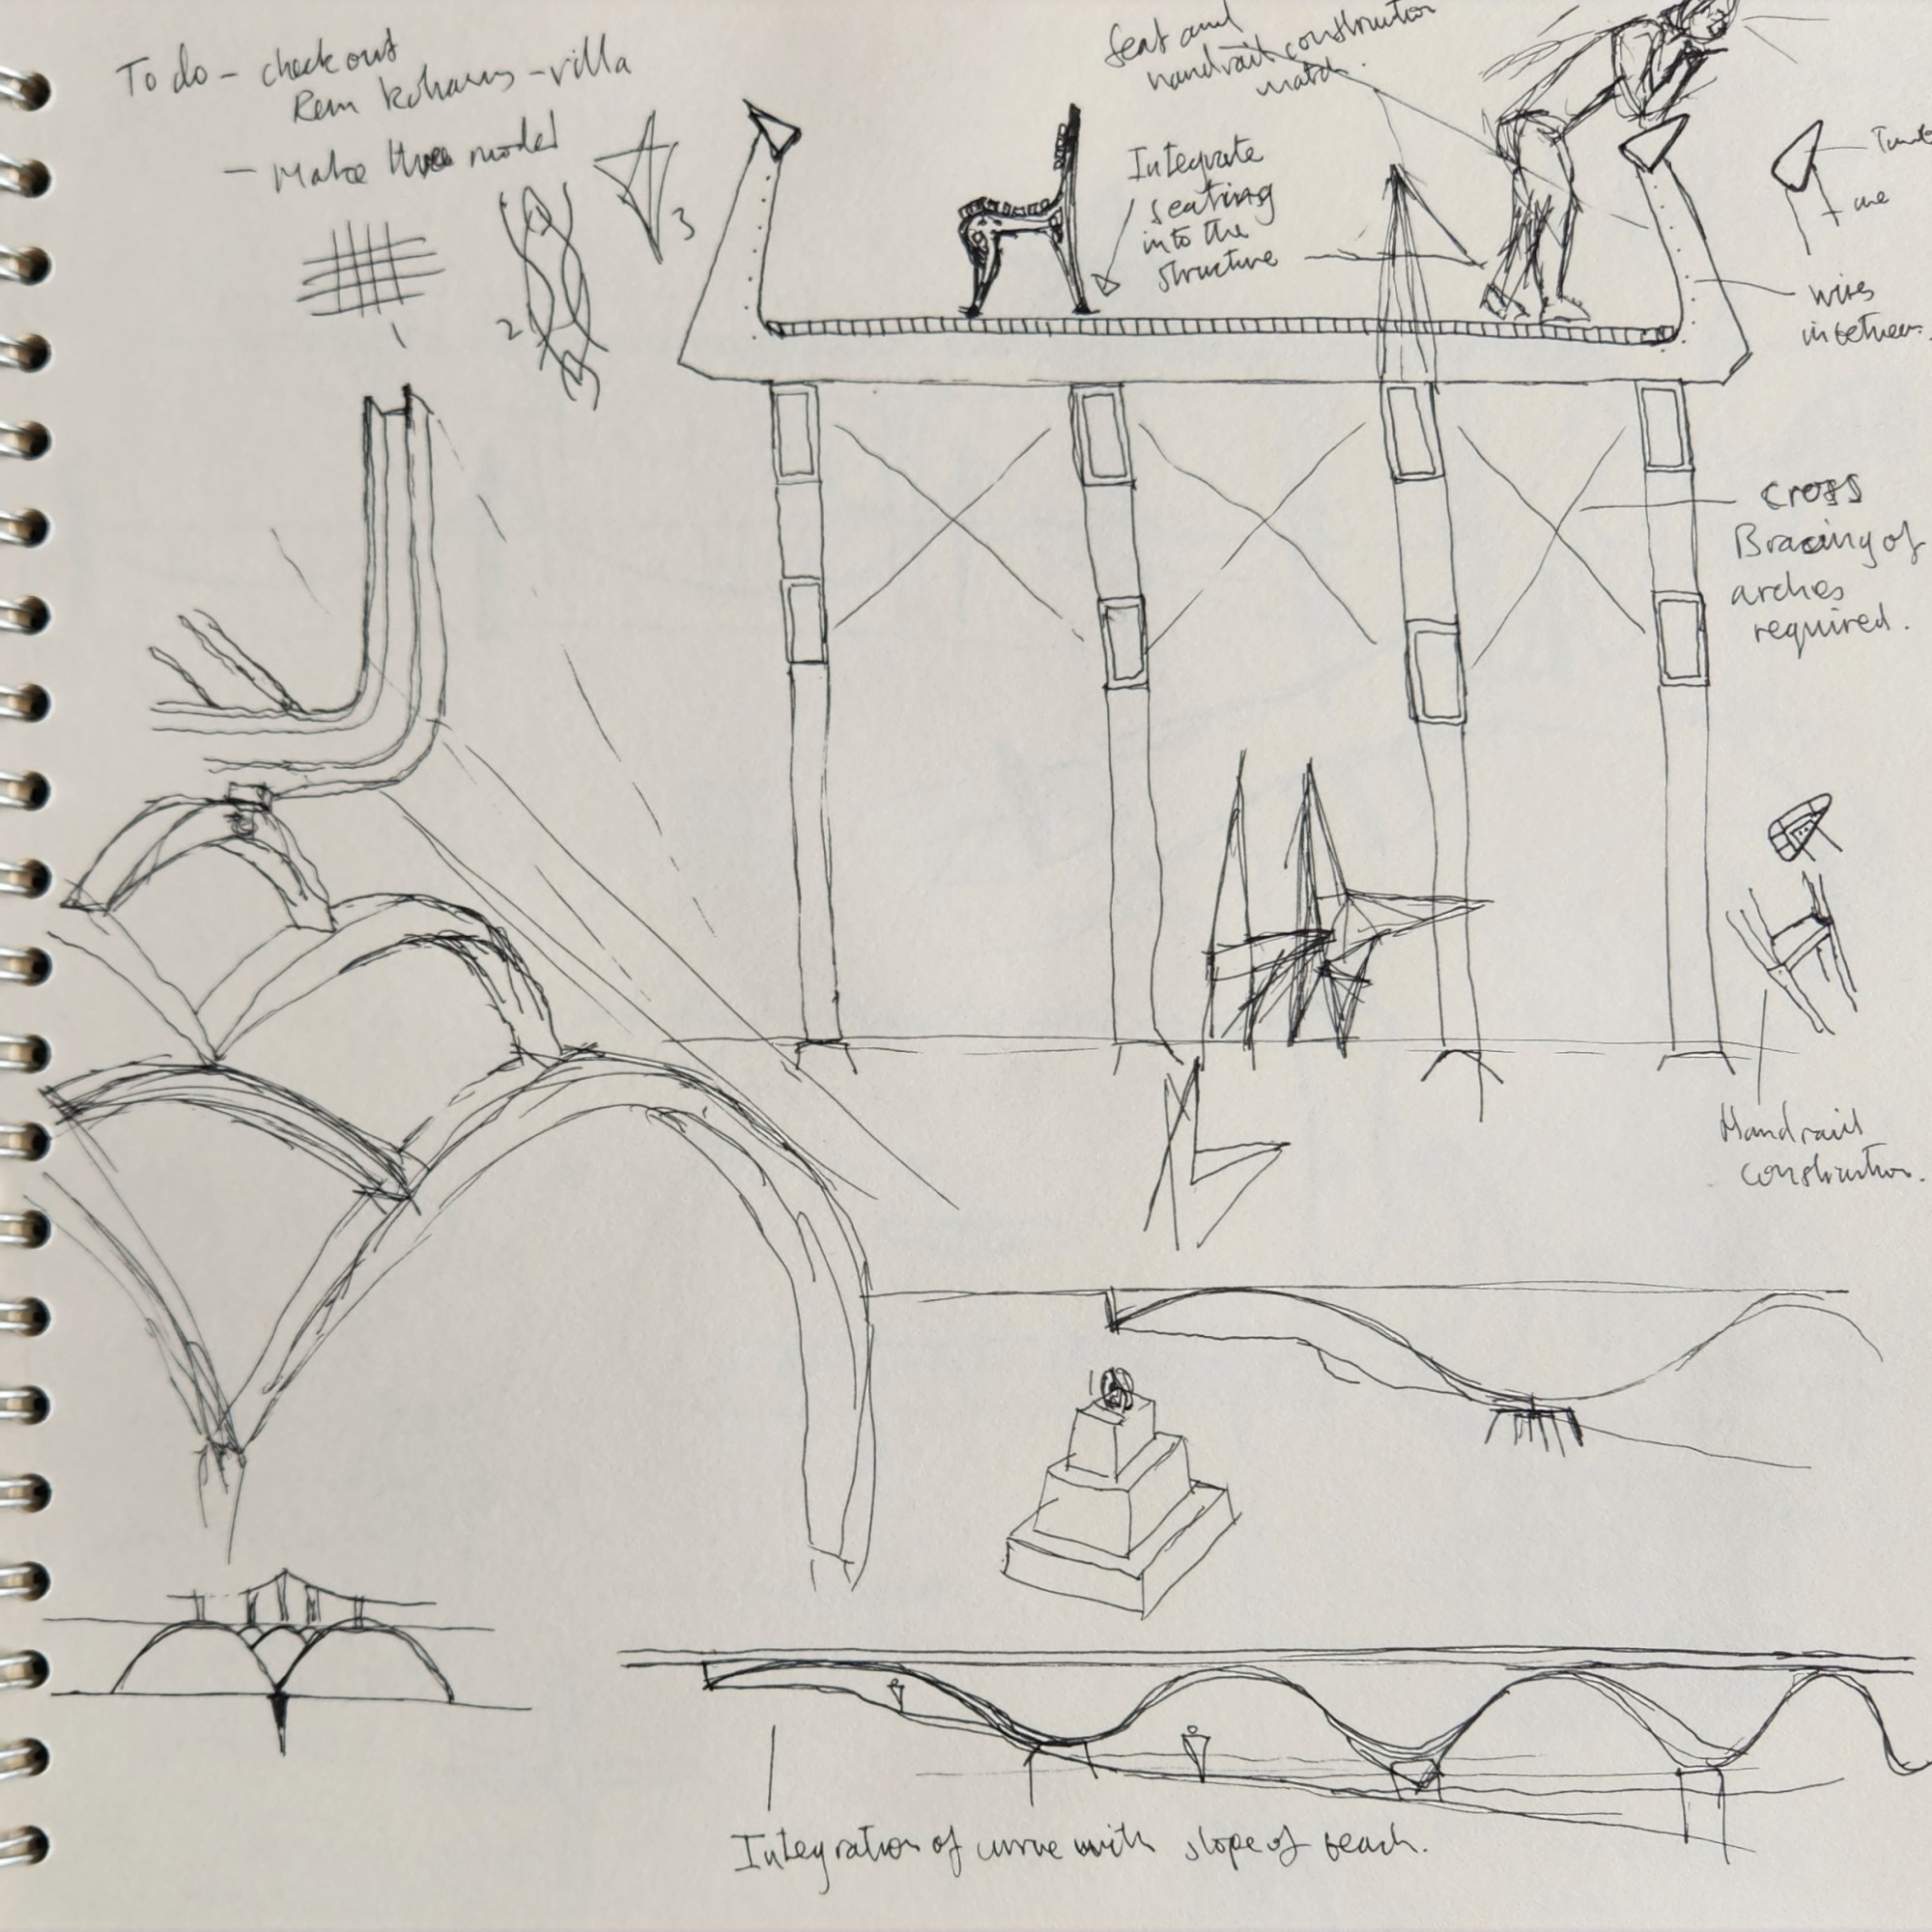 To do - check out
Rem Kohaus - villa
- Make three model
1
2
3
Seat and
handrail construction
match.
Integrate
seating
into the
structure
wires
in between.
cross
Bracing of
arches
required.
Handrail
construction.
Integration of curve with slope of beach.